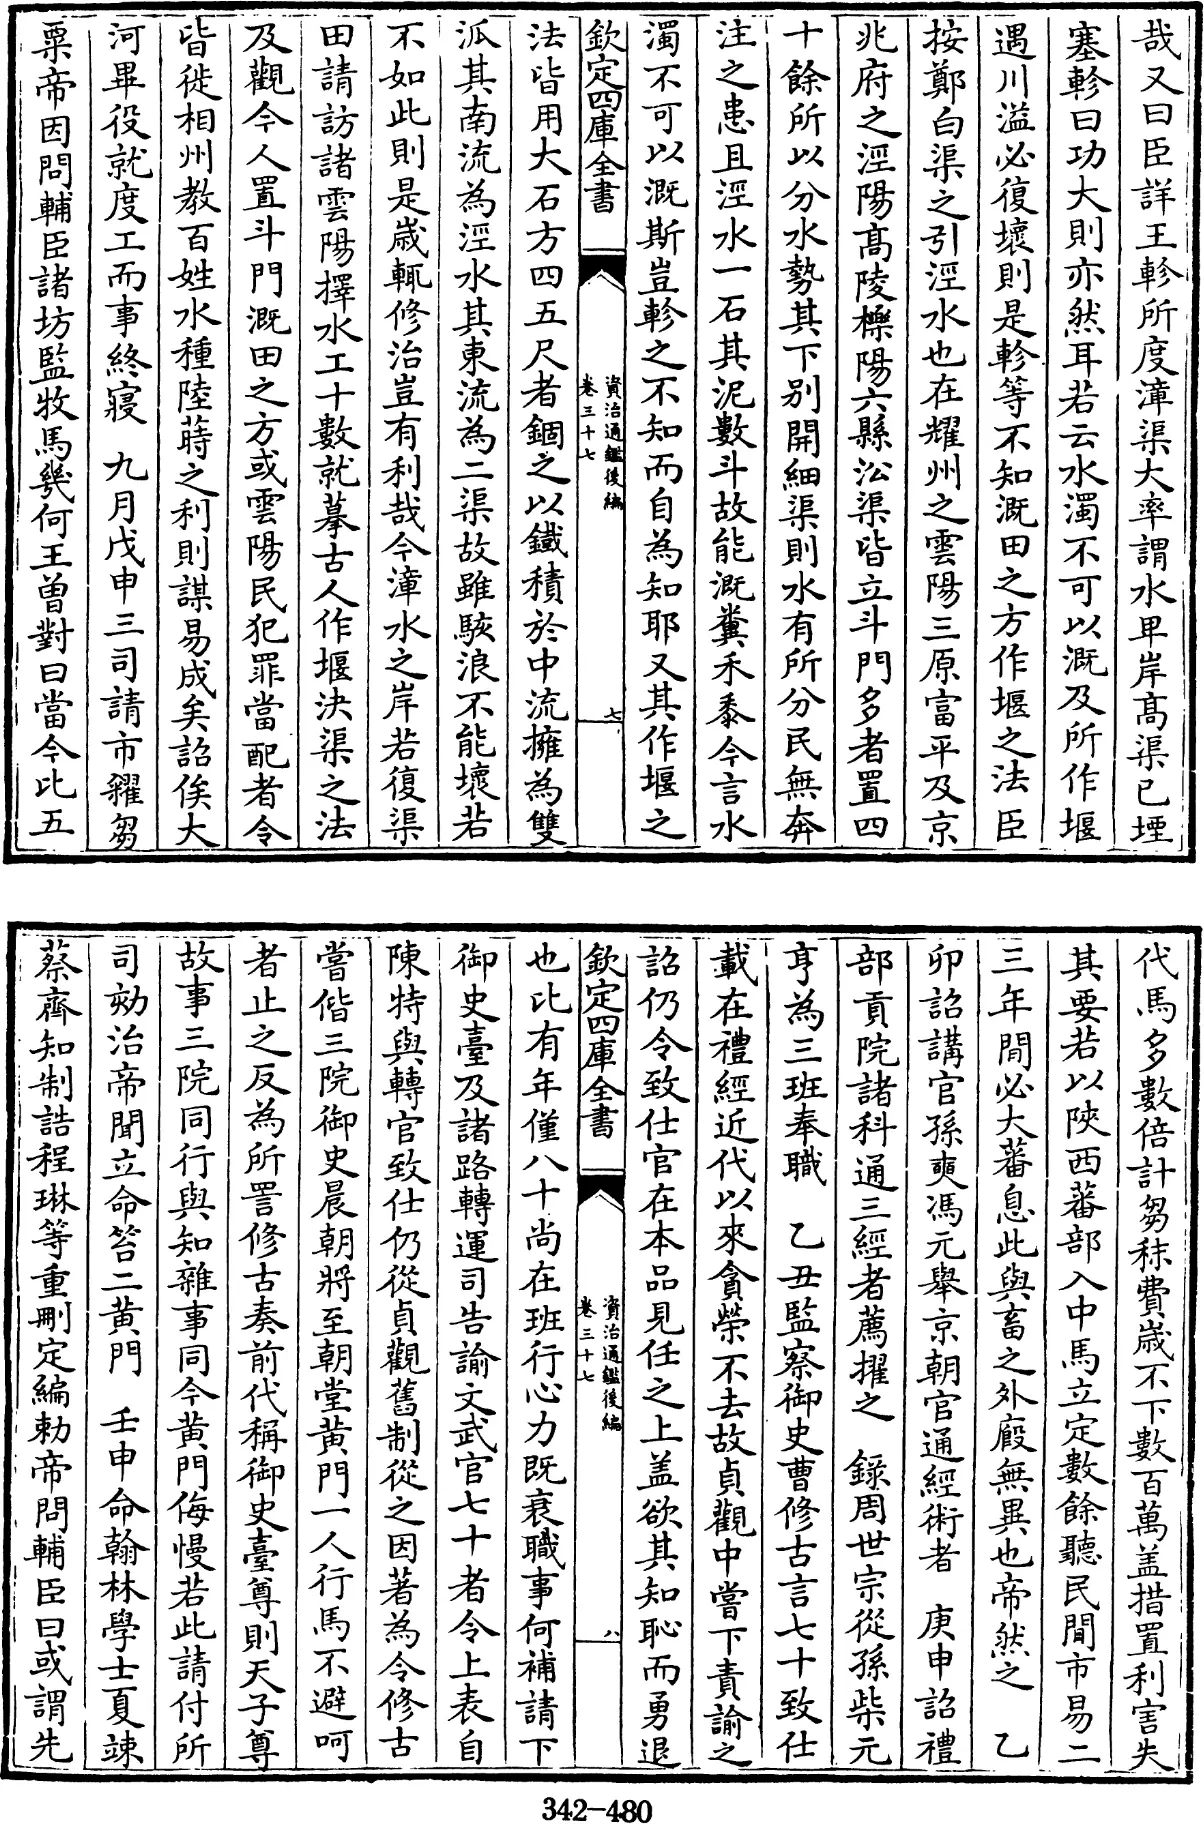 哉又曰臣詳王軫所度漳渠大率謂水卑岸髙渠已堙
塞軫曰功大則亦然耳若云水濁不可以溉及所作堰
遇川溢必復壞則是軫等不知溉田之方作堰之法臣
按鄭白渠之引涇水也在耀州之雲陽三原富平及京
兆府之涇陽髙陵櫟陽六縣㳂渠皆立斗門多者置四
十餘所以分水勢其下别開細渠則水有所分民無奔
注之患且涇水一石其泥數斗故能溉糞禾黍今言水
濁不可以溉斯豈軫之不知而自為知耶又其作堰之
欽定四庫全書
資治通鑑後編
卷三十七
七
法皆用大石方四五尺者錮之以鐵積於中流擁為雙
派其南流為涇水其東流為二渠故雖駭浪不能壞若
不如此則是嵗輒修治豈有利哉今漳水之岸若復渠
田請訪諸雲陽擇水工十數就摹古人作堰決渠之法
及觀今人置斗門溉田之方或雲陽民犯罪當配者令
皆徙相州教百姓水種陸蒔之利則謀易成矣詔俟大
河畢役就度工而事終寢　九月戊申三司請市糴芻
粟帝因問輔臣諸坊監牧馬幾何王曾對曰當今比五
代馬多數倍計芻秣費嵗不下數百萬盖措置利害失
其要若以陜西蕃部入中馬立定數餘聽民間市易二
三年間必大蕃息此與畜之外廐無異也帝然之　乙
卯詔講官孫奭馮元舉京朝官通經術者　庚申詔禮
部貢院諸科通三經者薦擢之　錄周世宗從孫柴元
亨為三班奉職　乙丑監察御史曹修古言七十致仕
載在禮經近代以來貪榮不去故貞觀中嘗下責諭之
詔仍令致仕官在本品見任之上盖欲其知恥而勇退
欽定四庫全書
資治通鑑後編
卷三十七
八
也比有年僅八十尚在班行心力既衰職事何補請下
御史臺及諸路轉運司告諭文武官七十者令上表自
陳特與轉官致仕仍從貞觀舊制從之因著為令修古
嘗偕三院御史晨朝將至朝堂黄門一人行馬不避呵
者止之反為所詈修古奏前代稱御史臺尊則天子尊
故事三院同行與知雜事同今黄門侮慢若此請付所
司劾治帝聞立命笞二黄門　壬申命翰林學士夏竦
蔡齊知制誥程琳等重刪定編勅帝問輔臣曰或謂先
342-480